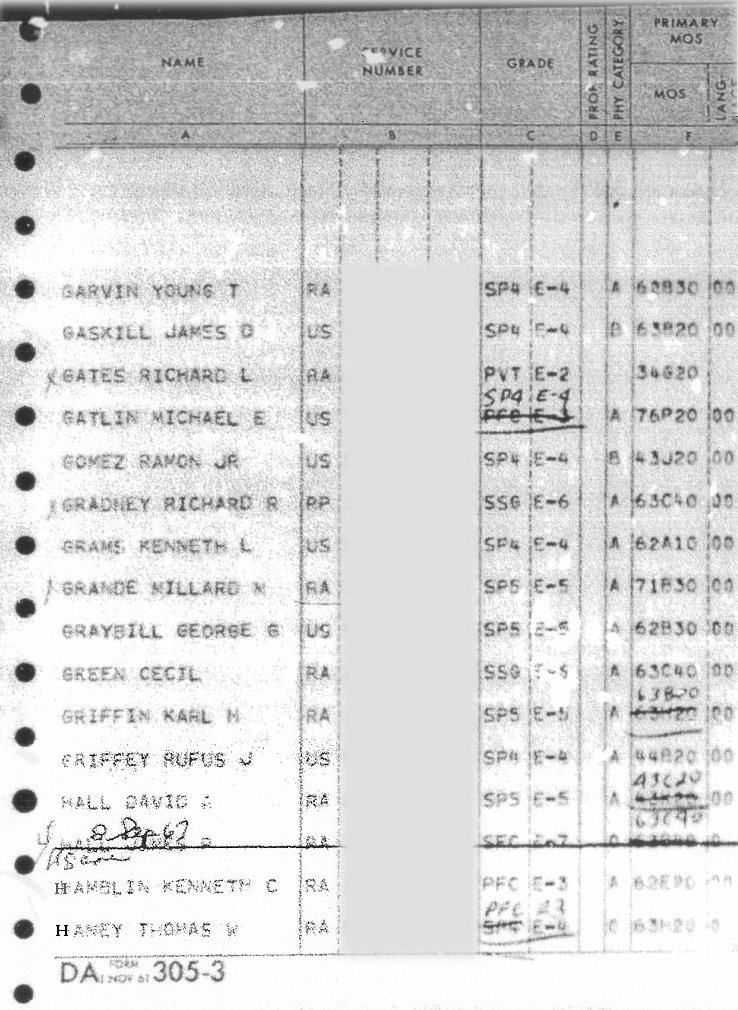 NAME SERVICE NUMBER GRADE PROF RATING PHY CATEGORY PRIMARY MOS
MOS LANG
A B C D E F
GARVIN YOUNG T RA SP4 E-4 A 62B30 00
GASKILL JAMES D US SP4 E-4 B 63B20 00
GATES RICHARD L RA PVT E-2 34G20
SP4 E-4
GATLIN MICHAEL E US PFC E-3 A 76P20 00
GOMEZ RAMON JR US SP4 E-4 B 43J20 00
GRADNEY RICHARD R RP SSG E-6 A 63C40 00
GRAMS KENNETH L US SP4 E-4 A 62A10 00
GRANDE WILLARD W RA SP5 E-5 A 71B30 00
GRAYBILL GEORGE G US SP5 E-5 A 62B30 00
GREEN CECIL RA SSG A 63C40 00
63B20
GRIFFIN KARL H RA SP5 E-5 A 63H20 00
GRIFFEY RUFUS J US SP4 E-4 A 44B20 00
HALL DAVID RA SP5 E-5 A 00
63C40
8 Sep 67
HALL JAMES R RA SFC E-7
HAMBLIN KENNETH C RA PFC E-3 A 62E20 00
PFC E3
HANEY THOMAS W RA SP4 E-4 C 63H20 0
DA FORM 1 NOV 61 305-3